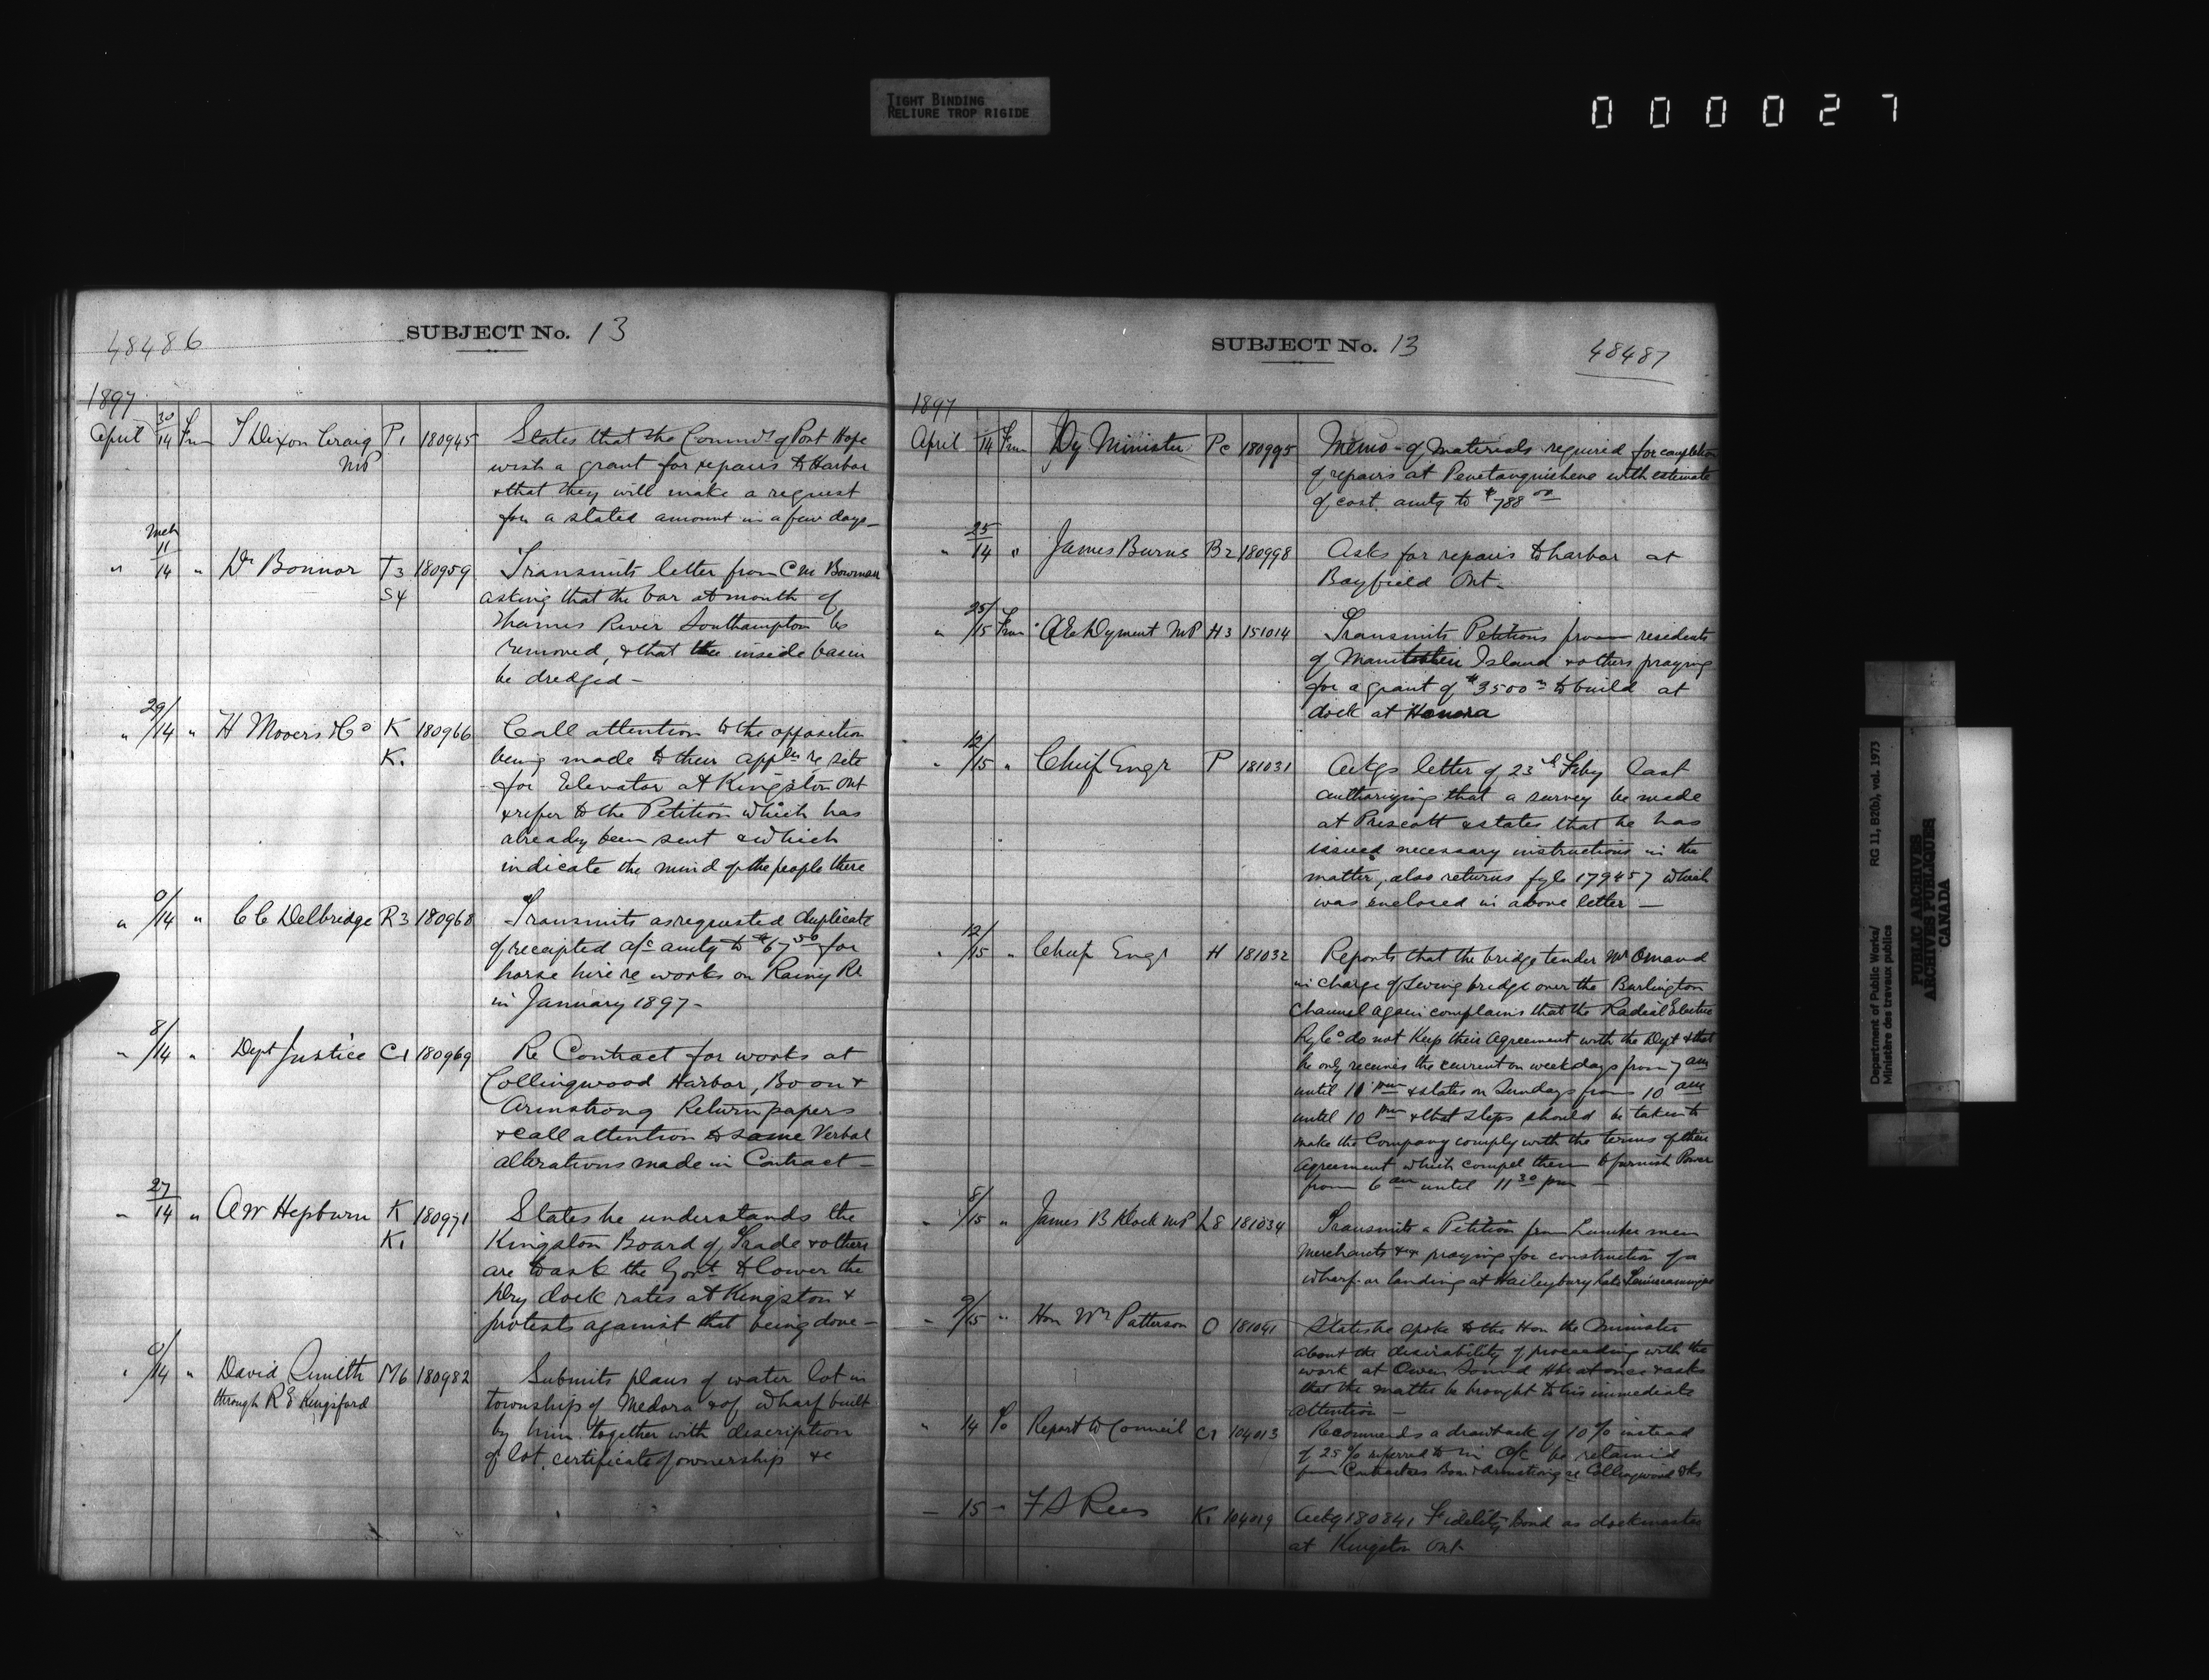 TIGHT BINDING
RELIURE TROP RIGIDE
000027
48486
SUBJECT No. 13
1897
April 30/14 Frm T Dixon Craig P1 180945 States that the Council of Port Hope
MP wish a grant for repairs to Harbor
& that they will make a request
for a stated amount in a few days -
Mch
" 11/14 " Dr Bonnar T3 180959 Transmits letter from C M Bowman
S4 asking that the bar at mouth of
Thames River Southampton be
removed, & that the inside basin
be dredged -
" 29/14 " H Mooers & Co K 180966 Call attention to the opposition
K1 being made to their appln re site
for Elevator at Kingston Ont
& refer to the Petition which has
already been sent & which
indicate the mind of the people there
" 9/14 " C C Delbridge R3 180968 Transmits as requested duplicate
of receipted a/c amtg to $67 50 for
horse hire re works on Rainy Rr
in January 1897 -
" 8/14 " Dept Justice C1 180969 Re Contract for works at
Collingwood Harbor, Boon &
Armstrong Return papers
& call attention to some Verbal
alterations made in Contract -
" 27/14 " A W Hepburn K 180971 States he understands the
K1 Kingston Board of Trade & others
are to ask the Govt to lower the
Dry dock rates at Kingston &
protests against that being done -
" 9/14 " David Smith M6 180982 Submits plans of water lot in
through R E Kingsford township of Medora & of wharf built
by him together with description
of lot, certificate of ownership &c
SUBJECT No. 13
48487
1897
April 14 Frm Dy Minister Pc 180995 Memo - of materials required for completion
of repairs at Penetanguishene with estimate
of cost, amtg to $788 00
" 25/14 " James Burns B2 180998 Asks for repairs to harbor at
Bayfield Ont -
" 25/15 Frm A E Dyment MP H3 151014 Transmits Petitions from residents
of Manitoulin Island & others praying
for a grant of $3500 to build at
dock at Honora
" 12/15 " Chief Engr P 181031 Ackgs letter of 23rd Feby last
authorizing that a survey be made
at Prescott & states that he has
issued necessary instructions in the
matter, also returns fyle 179457 which
was enclosed in above letter -
" 12/15 " Chief Engr H 181032 Reports that the bridge tender Mr Omand
in charge of Swing bridge over the Burlington
Channel again complains that the Radial Electric
Ry Co do not keep their agreement with the Dept & that
he only receives the current on weekdays from 7 am
until 10 pm & states on Sundays from 10 am
until 10 pm & that steps should be taken to
make the Company comply with the terms of their
agreement which compel them to furnish Power
from 6 am until 11 30 pm -
" 8/15 " James B Klock MP L8 181034 Transmits a Petition from Lumbermen
Merchants &c praying for construction of a
wharf or landing at Haileybury Lake Temiscamingue
" 9/15 " Hon Wm Patterson O 181041 States he spoke to the Hon the Minister
about the desirability of proceeding with the
work at Owen Sound Hbr at once & asks
that the matter be brought to his immediate
attention -
" 14 To Report to Council C1 104013 Recommends a drawback of 10% instead
of 25% referred to in O/C be retained
from Contractors Boon & Armstrong re Collingwood
- 15 - F S Rees K1 104019 Ackg 180841 Fidelity Bond as dockmaster
at Kingston Ont -
Department of Public Works/ RG 11, B2(b), vol. 1973
Ministère des travaux publics
PUBLIC ARCHIVES
ARCHIVES PUBLIQUES
CANADA